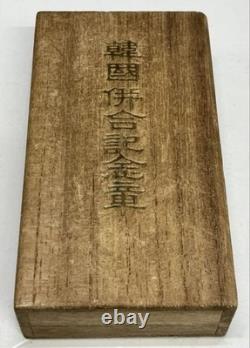 韓國併合記念章
ebay